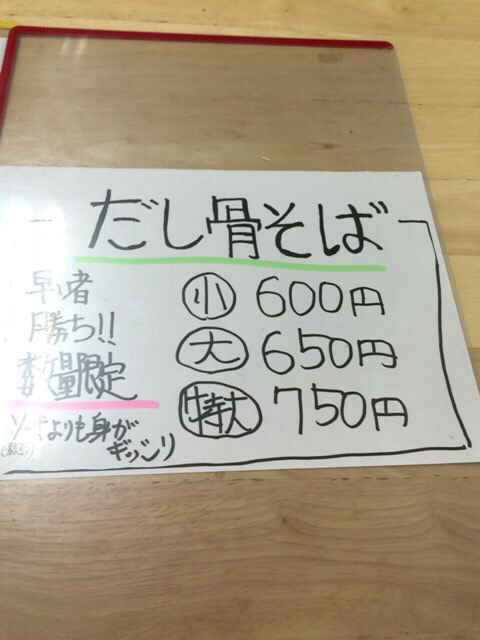 だし骨そば
早い者
勝ち!!
数量限定
ソーキよりも身が
ギッシリ
小 600円
大 650円
特大 750円